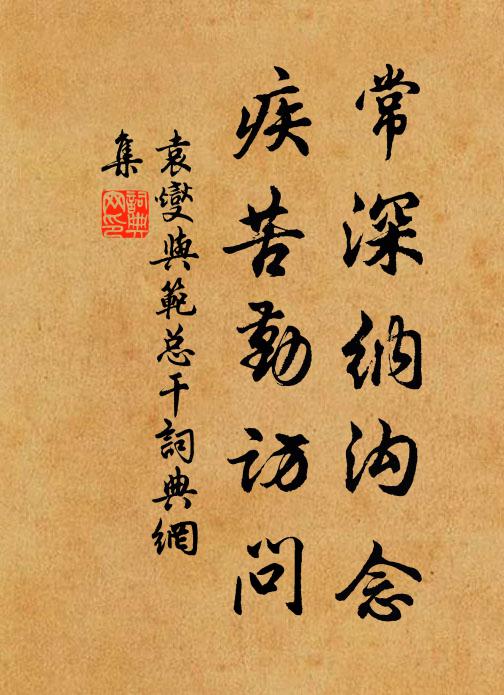 常深纳沟念
疾苦勤访问
袁燮与範总干詞典網
集
詞典
网印